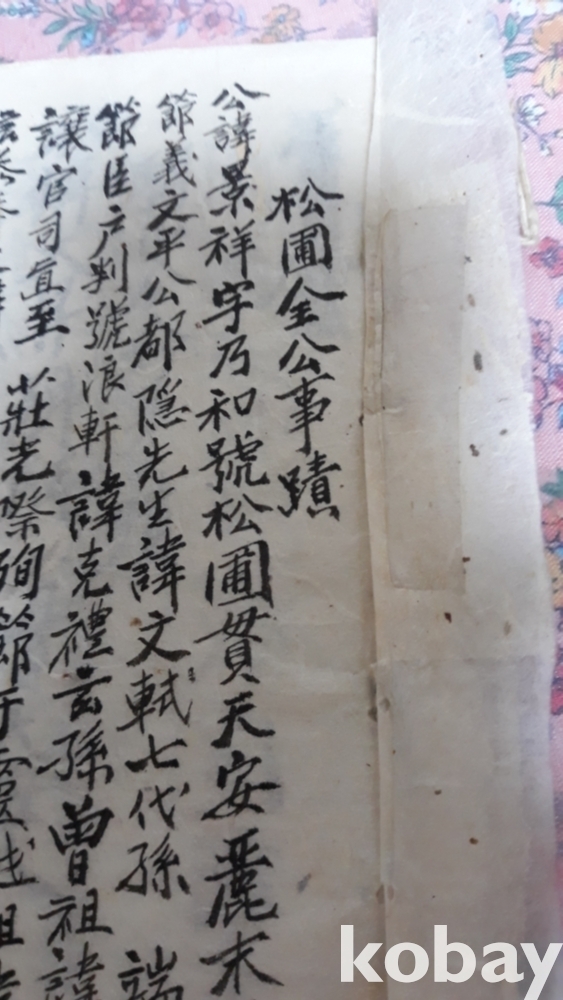 松圃全公事蹟
公諱景祥字乃和號松圃貫天安麗末
節義文平公都隱先生諱文軾七代孫 端
節臣戶判號浪軒諱克禮玄孫曾祖諱
讓官司直至 莊光際殉節于
kobay